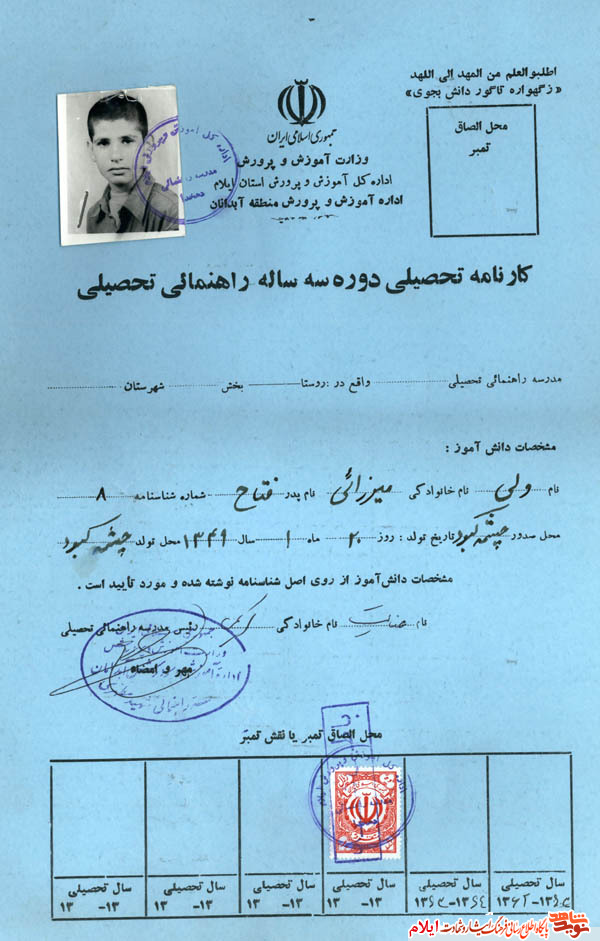 اطلبوالعلم من المهد الی اللهد
«زگهواره تاگور دانش بجوی»
محل الصاق
تمبر
جمهوری اسلامی ایران
وزارت آموزش و پرورش
اداره کل آموزش و پرورش استان ایلام
اداره آموزش و پرورش منطقه آبدانان
کارنامه تحصیلی دوره سه ساله راهنمائی تحصیلی
مدرسه راهنمائی تحصیلی واقع در : روستا بخش شهرستان
مشخصات دانش آموز :
نام ولی نام خانوادگی میرزائی نام پدر فتاح شماره شناسنامه ۸
محل صدور چشمه کبود تاریخ تولد : روز ۲۰ ماه ۱ سال ۱۳۴۹ محل تولد چشمه کبود
مشخصات دانش‌آموز از روی اصل شناسنامه نوشته شده و مورد تأیید است .
نام نام خانوادگی رئیس مدرسه راهنمائی تحصیلی
مهر و امضاء
محل الصاق تمبر یا نقش تمبر
سال تحصیلی سال تحصیلی سال تحصیلی سال تحصیلی سال تحصیلی سال تحصیلی
۱۳–۱۳ ۱۳–۱۳ ۱۳–۱۳ ۱۳–۱۳
نوید شاهد
پایگاه اطلاع رسانی فرهنگ ایثار و شهادت ایلام